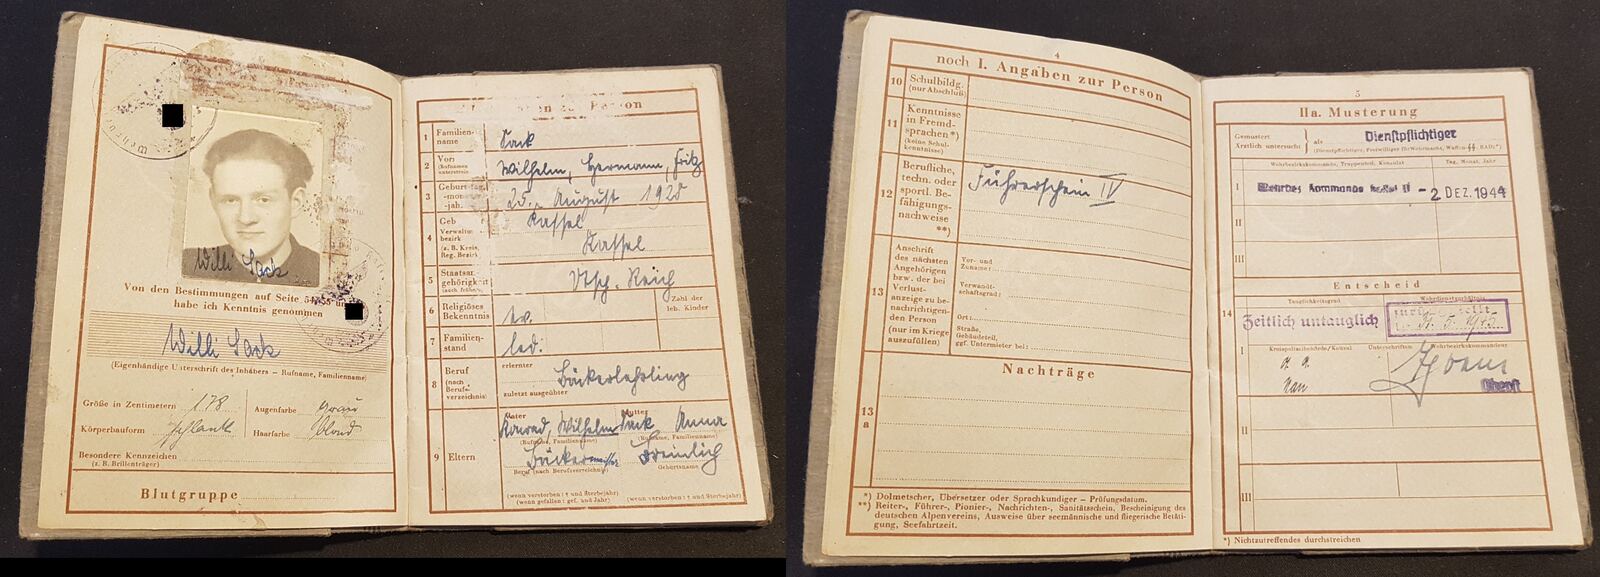 Willi Sack
Von den Bestimmungen auf Seite 54/55
habe ich Kenntnis genommen
Willi Sack
(Eigenhändige Unterschrift des Inhabers – Rufname, Familienname)
Größe in Zentimetern 178 Augenfarbe grau
Körperbauform schlank Haarfarbe blond
Besondere Kennzeichen
(z. B. Brillenträger)
Blutgruppe
Person
1 Familien-
name Sack
2 Vor-
(Rufnamen
unterstrein)
Wilhelm, Hermann, Fritz
3 Geburts-tag,
-mon-
-jah.
August
4 Geb
Verwaltu-
bezirk
(z. B. Kreis,
Reg. Bezirk)
Kassel
Kassel
5 Staatsan-
gehörigkeit
Dtsch. Reich
6 Religiöses
Bekenntnis
ev.
Zahl der
leb. Kinder
7 Familien-
stand
led.
8 Beruf
(nach
Berufs-
verzeichnis)
erlernter
Bäckerlehrling
zuletzt ausgeübter
9 Eltern
Vater Mutter
Konrad, Wilhelm Sack Anna
(Rufname, Familienname) (Rufname, Familienname)
Bäckermeister
Beruf (nach Berufsverzeichnis) Geburtsname
(wenn verstorben: † und Sterbejahr)
(wenn gefallen: gef. und Jahr) (wenn verstorben: † und Sterbejahr)
4
noch I. Angaben zur Person
10 Schulbildg.
(nur Abschluß)
11 Kenntnisse
in Fremd-
sprachen*)
(keine Schul-
kenntnisse)
12 Berufliche,
techn. oder
sportl. Be-
fähigungs-
nachweise
**)
Führerschein IV
13 Anschrift
des nächsten
Angehörigen
bzw. der bei
Verlust-
anzeige zu be-
nachrichtigen-
den Person
(nur im Kriege
auszufüllen)
Vor- und
Zuname:
Verwandt-
schaftsgrad:
Ort:
Straße,
Gebäudeteil,
ggf. Untermieter bei:
Nachträge
13
a
*) Dolmetscher, Übersetzer oder Sprachkundiger – Prüfungsdatum.
**) Reiter-, Führer-, Pionier-, Nachrichten-, Sanitätsschein, Bescheinigung des
deutschen Alpenvereins, Ausweise über seemännische und fliegerische Betäti-
gung, Seefahrtzeit.
5
IIa. Musterung
Gemustert
Ärztlich untersucht } als Dienstpflichtiger
(Dienstpflichtiger, Freiwilliger für Wehrmacht, Waffen-SS, RAD*)
Wehrbezirkskommando, Truppenteil, Konsulat Tag, Monat, Jahr
I Kommando Kassel II - 2 DEZ. 1944
II
III
Entscheid
Tauglichkeitsgrad Wehrdienstverhältnis
14 Zeitlich untauglich
I Kreispolizeibehörde/Konsul Unterschriften Wehrbezirkskommandeur
Oberst
II
III
*) Nichtzutreffendes durchstreichen